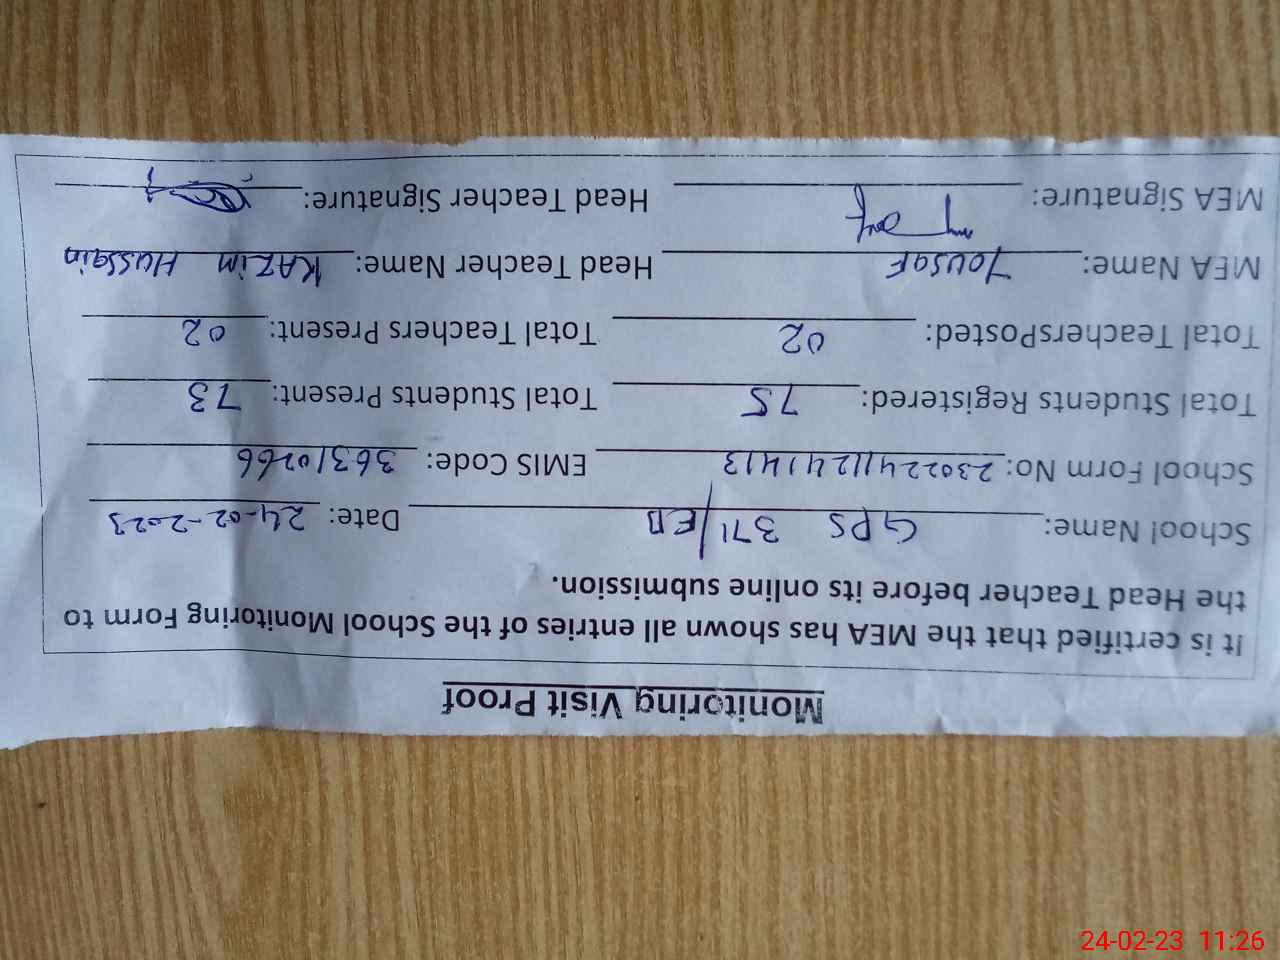 Monitoring Visit Proof
It is certified that the MEA has shown all entries of the School Monitoring Form to
the Head Teacher before its online submission.
School Name: GPS 371/EB Date: 24-02-2023
School Form No: 230224111241413 EMIS Code: 36310266
Total Students Registered: 75 Total Students Present: 73
Total TeachersPosted: 02 Total Teachers Present: 02
MEA Name: YOUSAF Head Teacher Name: KAZIM Hussain
MEA Signature: Head Teacher Signature:
24-02-23 11:26